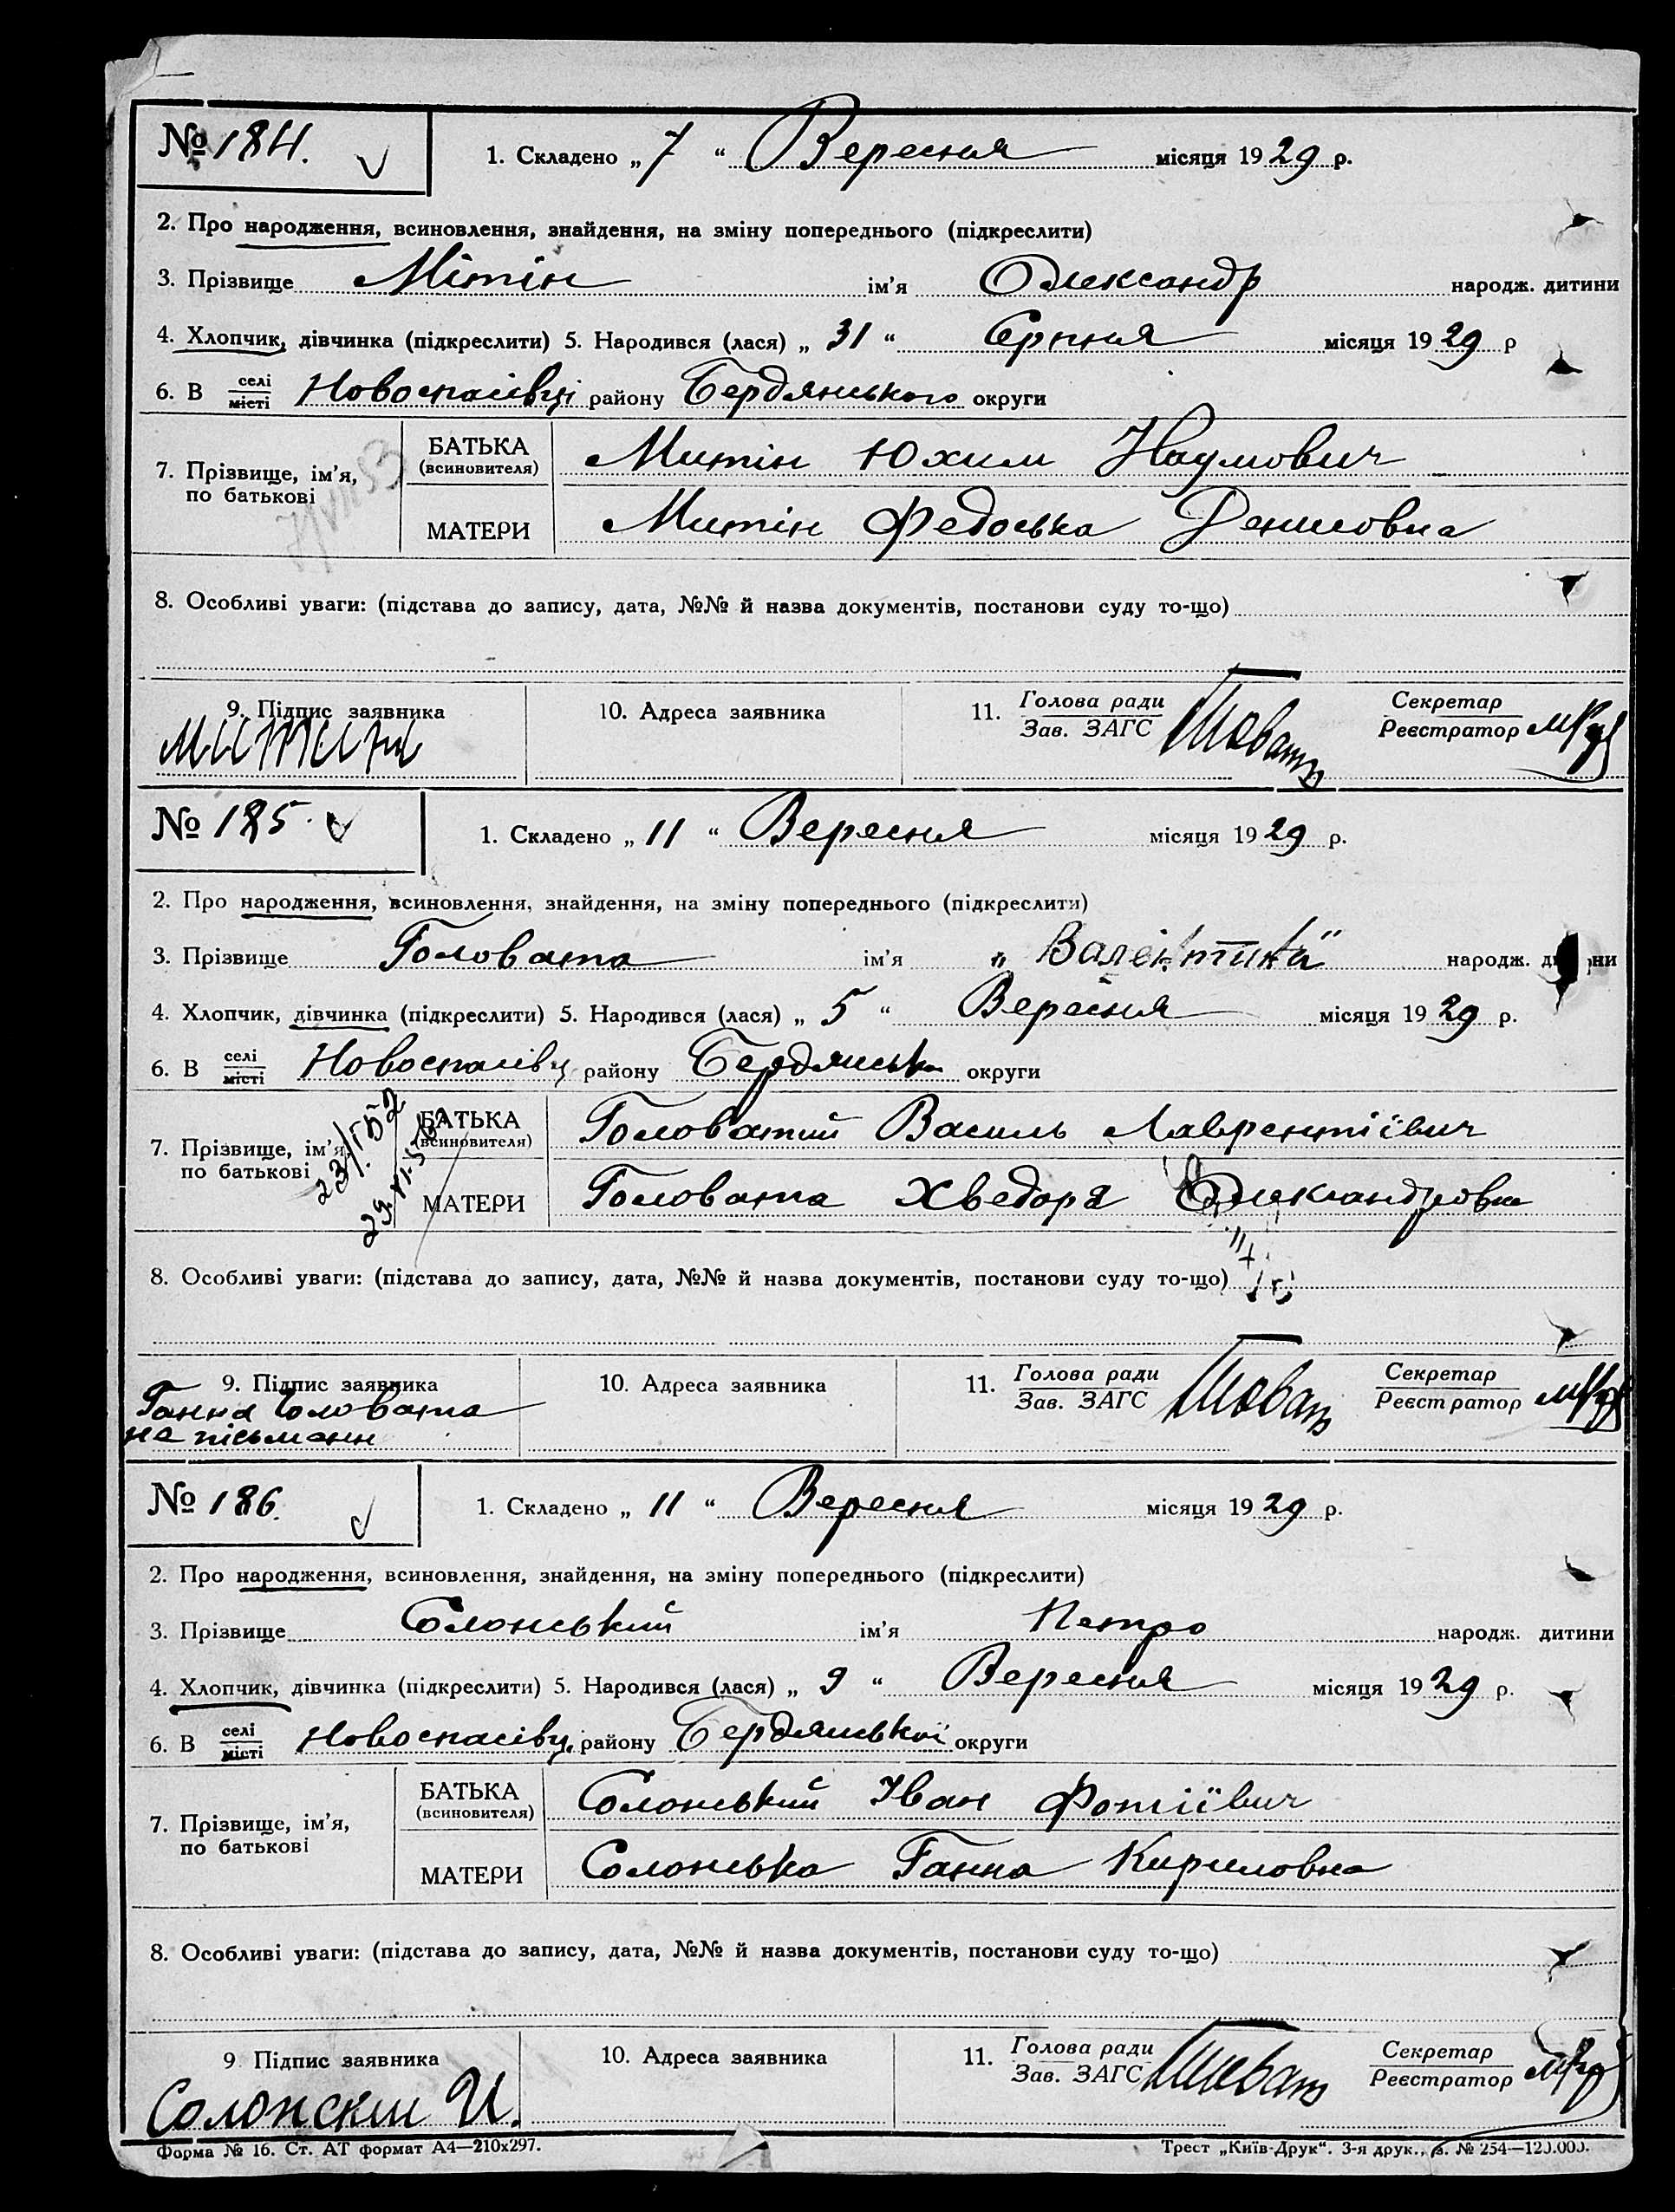 № 184.
1. Складено „ 7 “ Вересня місяця 1929 р.
2. Про народження, всиновлення, знайдення, на зміну попереднього (підкреслити)
3. Прізвище Мітін ім'я Олександр народж. дитини
4. Хлопчик, дівчинка (підкреслити) 5. Народився (лася) „ 31 “ Серпня місяця 1929 р
6. В селі місті Новоспасівці району Бердянського округи
7. Прізвище, ім'я, по батькові
БАТЬКА (всиновителя) Митін Юхим Наумович
МАТЕРИ Митін Федоська Денисовна
8. Особливі уваги: (підстава до запису, дата, №№ й назва документів, постанови суду то-що)
9. Підпис заявника 10. Адреса заявника 11. Голова ради Зав. ЗАГС Секретар Реєстратор
Митин
№ 185.
1. Складено „ 11 “ Вересня місяця 1929 р.
2. Про народження, всиновлення, знайдення, на зміну попереднього (підкреслити)
3. Прізвище Головата ім'я „ Валентина “ народж. дитини
4. Хлопчик, дівчинка (підкреслити) 5. Народився (лася) „ 5 “ Вересня місяця 1929 р.
6. В селі місті Новоспасівці району Бердянська округи
7. Прізвище, ім'я, по батькові
БАТЬКА (всиновителя) Головатий Василь Лаврентіївич
МАТЕРИ Головата Хведора Олександровна
8. Особливі уваги: (підстава до запису, дата, №№ й назва документів, постанови суду то-що)
9. Підпис заявника 10. Адреса заявника 11. Голова ради Зав. ЗАГС Секретар Реєстратор
Ганна Головата
не письменн
№ 186.
1. Складено „ 11 “ Вересня місяця 1929 р.
2. Про народження, всиновлення, знайдення, на зміну попереднього (підкреслити)
3. Прізвище Солонський ім'я Петро народж. дитини
4. Хлопчик, дівчинка (підкреслити) 5. Народився (лася) „ 9 “ Вересня місяця 1929 р.
6. В селі місті Новоспасівц. району Бердянської округи
7. Прізвище, ім'я, по батькові
БАТЬКА (всиновителя) Солонський Іван Фотіївич
МАТЕРИ Солонська Ганна Кириловна
8. Особливі уваги: (підстава до запису, дата, №№ й назва документів, постанови суду то-що)
9 Підпис заявника 10. Адреса заявника 11. Голова ради Зав. ЗАГС Секретар Реєстратор
Солонский И.
Форма № 16. Ст. АТ формат А4—210х297. Трест „Київ-Друк“. 3-я друк., з. № 254—120.000.